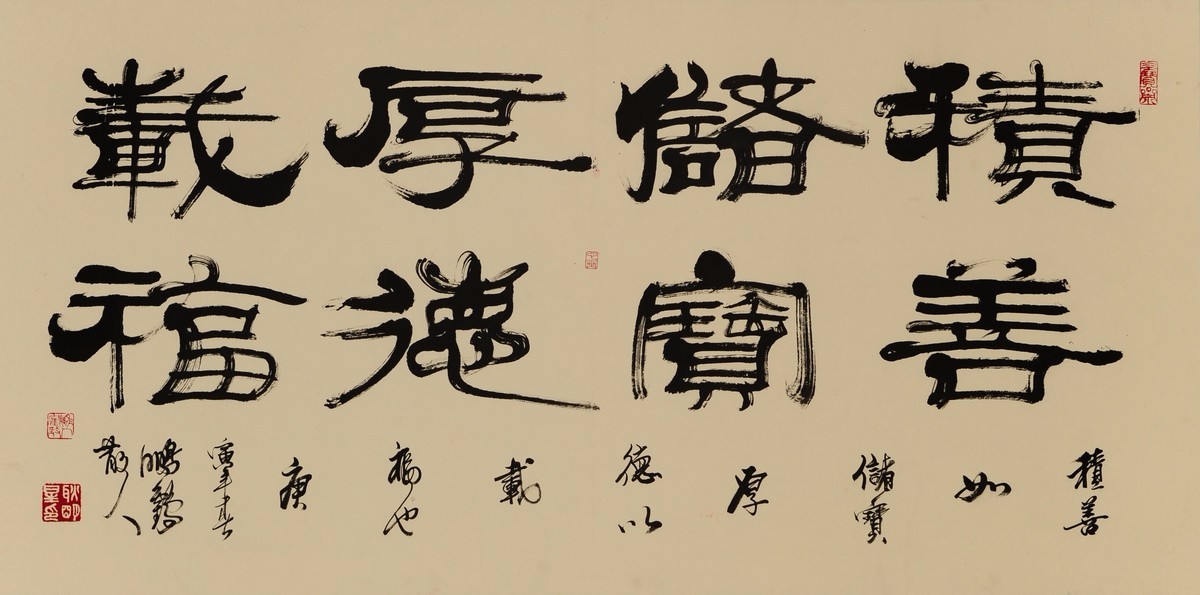 積善
儲寶
厚德
載福
積善
如
儲寶
厚
德以
載
福也
庚
寅年春
鵬鶴
散人
耿明